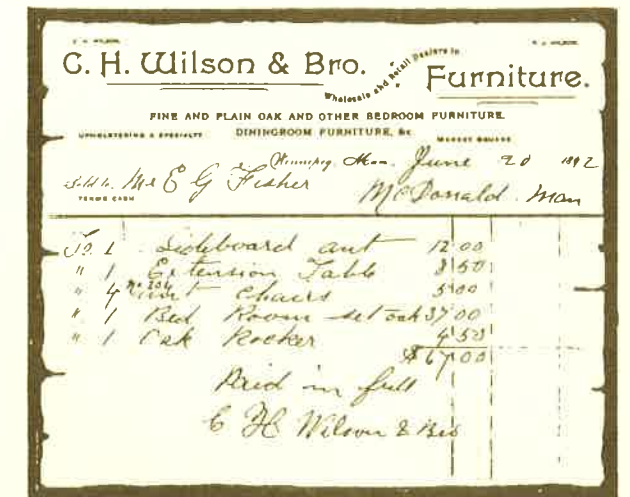 C. H. Wilson & Bro. Wholesale and Retail Dealers in Furniture.
FINE AND PLAIN OAK AND OTHER BEDROOM FURNITURE.
UPHOLSTERING A SPECIALTY DININGROOM FURNITURE, &c MARKET SQUARE
Winnipeg, Man. June 20 1892
Sold to Mr E G Fisher McDonald Man
TERMS CASH
To 1 Sideboard ant 12 00
" 1 Extension Table 8 50
" 4 No 204 chairs 5 00
" 1 Bed Room set oak 37 00
" 1 Oak Rocker 4 50
$ 67 00
Paid in full
C H Wilson & Bro